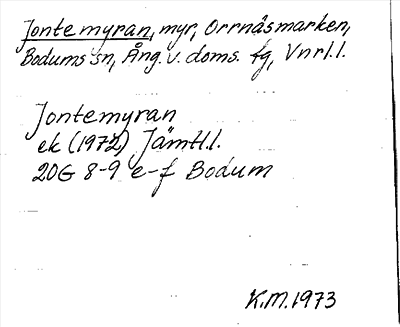 Jontemyran, myr, Orrnäsmarken,
Bodums sn, Ång. v. doms. fg, Vnrl.l.
Jontemyran
ek (1972) Jämtl.l.
20G 8-9 e-f Bodum
K.M. 1973